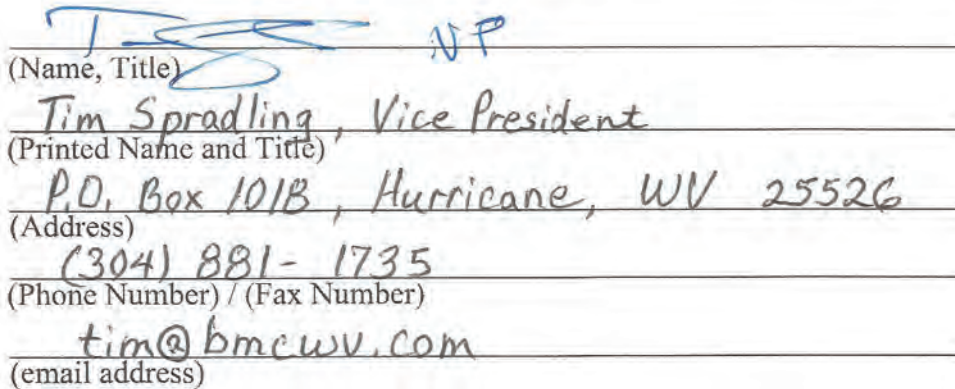 VP
(Name, Title)
Tim Spradling, Vice President
(Printed Name and Title)
P.O. Box 1018, Hurricane, WV 25526
(Address)
(304) 881-1735
(Phone Number) / (Fax Number)
tim@bmcwv.com
(email address)